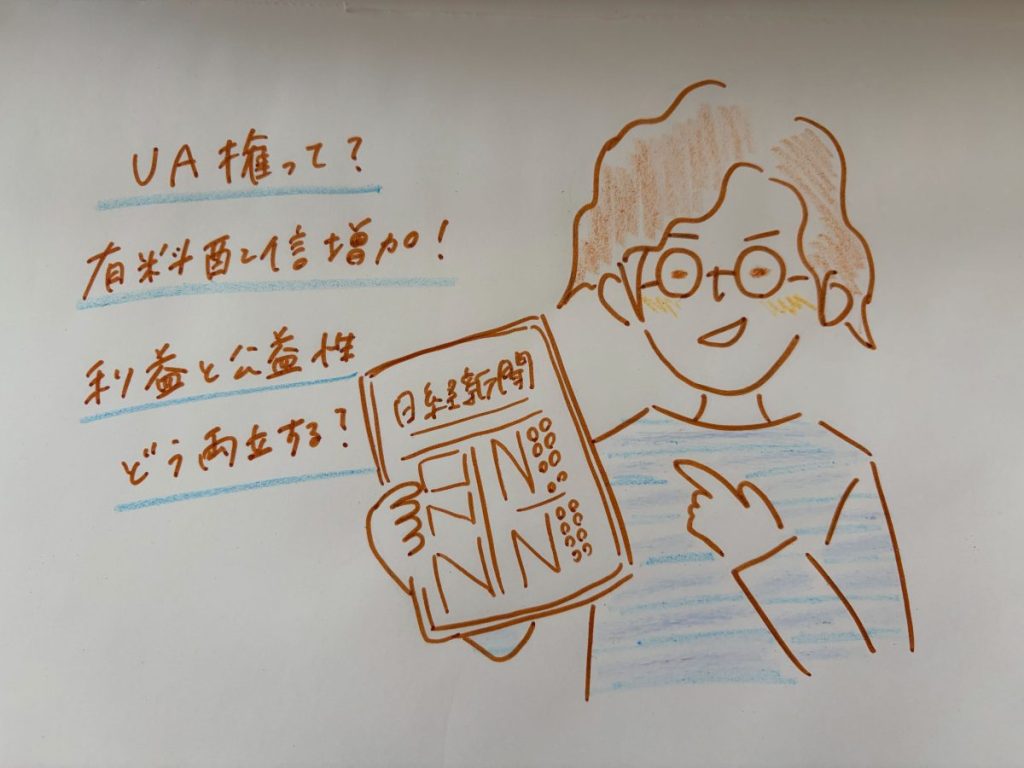 UA権って?
有料配信増加!
利益と公益性
どう両立する?
日経新聞